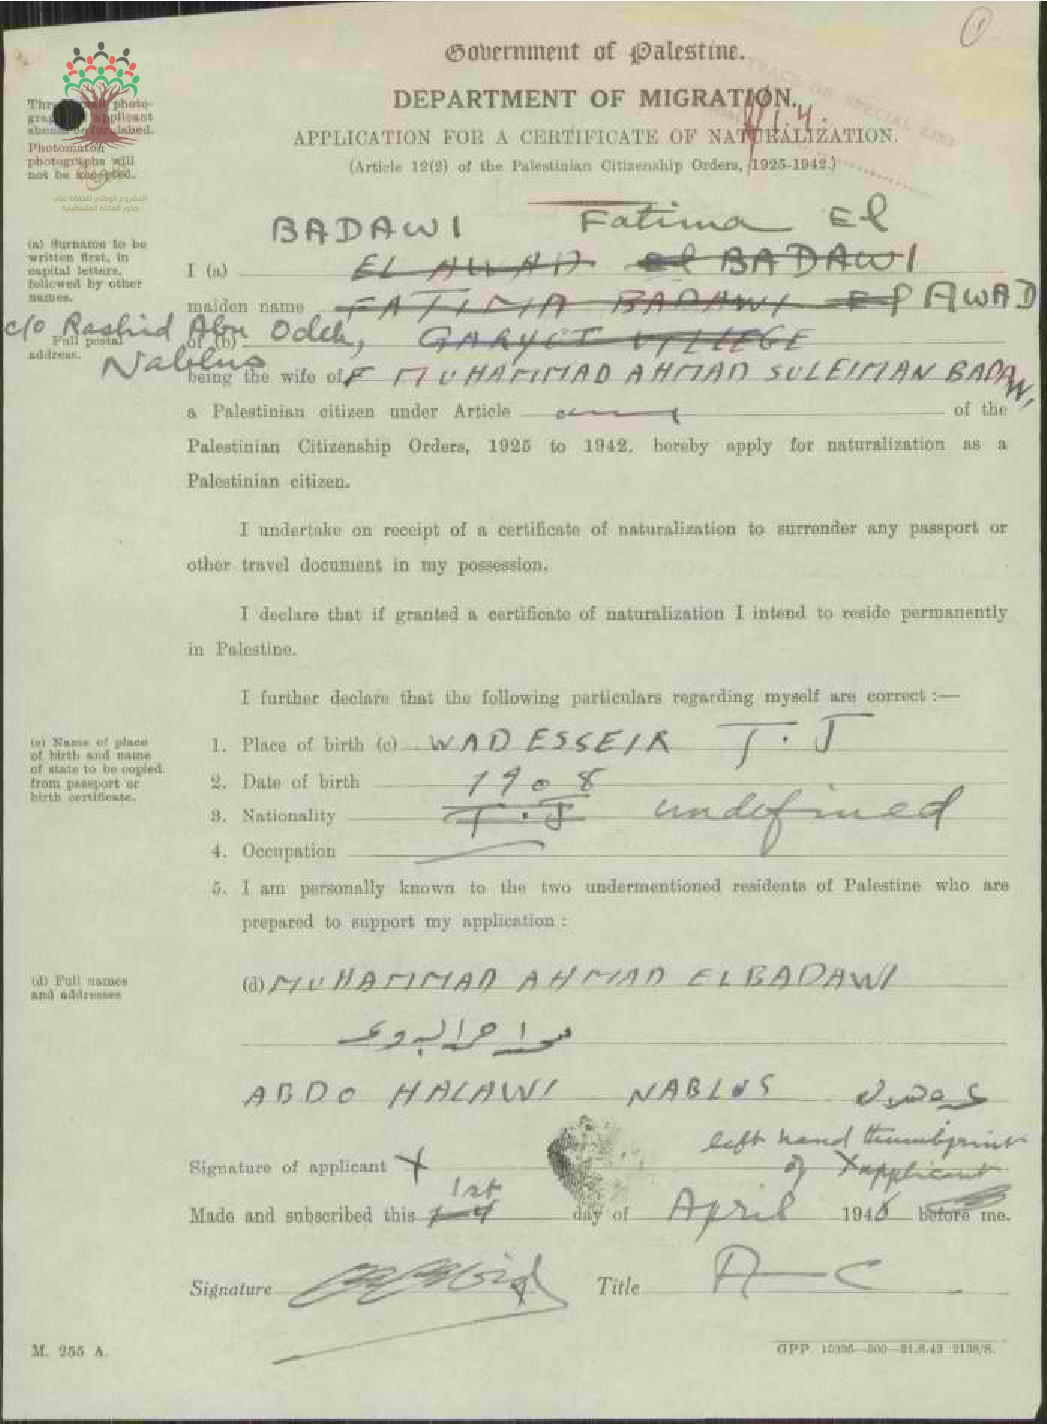 Government of Palestine.
DEPARTMENT OF MIGRATION.
APPLICATION FOR A CERTIFICATE OF NATURALIZATION.
(Article 12(2) of the Palestinian Citizenship Orders, 1925-1942.)
photo-
applicant
Photomaton
photographs will
not be accepted.
المشروع الوطني للحفاظ على
جذور العائلة الفلسطينية
BADAWI Fatima El
(a) Surname to be
written first, in
capital letters,
followed by other
names.
I (a) EL AWAD el BADAWI
maiden name FATIMA BADAWI El AWAD
c/o Rashid Abu Odeh,
Full postal
address.
of (b) VILLEGE
Nablus
being the wife of MUHAMMAD AHMAD SULEIMAN BADAWI
a Palestinian citizen under Article of the
Palestinian Citizenship Orders, 1925 to 1942, hereby apply for naturalization as a
Palestinian citizen.
I undertake on receipt of a certificate of naturalization to surrender any passport or
other travel document in my possession.
I declare that if granted a certificate of naturalization I intend to reside permanently
in Palestine.
I further declare that the following particulars regarding myself are correct :—
(c) Name of place
of birth and name
of state to be copied
from passport or
birth certificate.
1. Place of birth (c) WADESSEIR T.J
2. Date of birth 1908
3. Nationality T.J undefined
4. Occupation
5. I am personally known to the two undermentioned residents of Palestine who are
prepared to support my application :
(d) Full names
and addresses
(d) MUHAMMAD AHMAD ELBADAWI
ABDO HALAWI NABLUS
left hand thumbprint
of applicant
Signature of applicant X
Made and subscribed this 1st day of April 1946 before me.
Signature Title
M. 255 A.